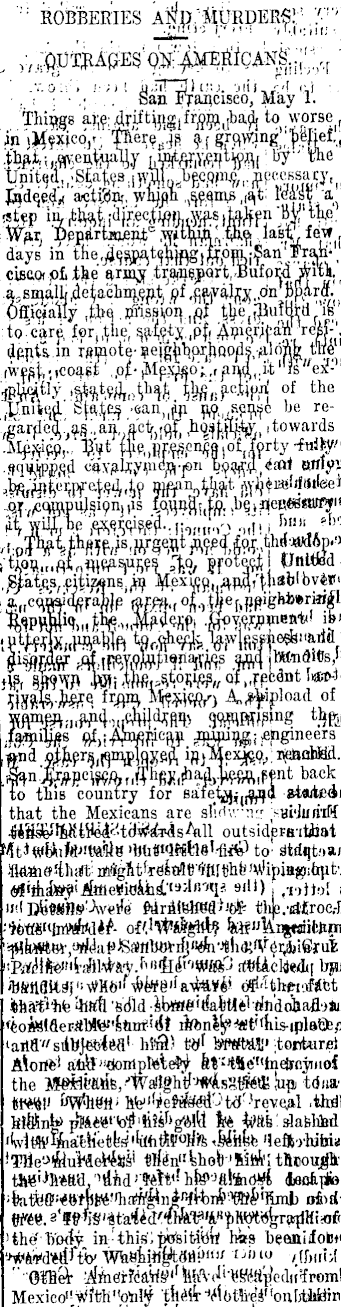 ROBBERIES AND MURDERS.
OUTRAGES ON AMERICANS.
San Francisco, May 1.
Things are drifting from bad to worse
in Mexico. There is a growing belief
that eventually intervention by the
United States will become necessary.
Indeed, action which seems at least a
step in that direction was taken by the
War Department within the last few
days in the despatching from San Fran-
cisco of the army transport Buford with
a small detachment of cavalry on board.
Officially the mission of the Buford is
to care for the safety of American resi-
dents in remote neighborhoods along the
west coast of Mexico; and it is ex-
plicitly stated that the action of the
United States can in no sense be re-
garded as an act of hostility towards
Mexico. But the presence of forty fully
equipped cavalrymen on board can only
be interpreted to mean that where force
or compulsion is found to be necessary
it will be exercised.
That there is urgent need for the adop-
tion of measures to protect United
States citizens in Mexico, and that over
a considerable area of the neighboring
Republic the Madero Government is
utterly unable to check lawlessness and
disorder of revolutionaries and bandits,
is shown by the stories of recent ar-
rivals here from Mexico. A shipload of
women and children, comprising the
families of American mining engineers
and others employed in Mexico, reached
San Francisco. They had been sent back
to this country for safety, and stated
that the Mexicans are showing such in-
tense hatred towards all outsiders that
it would take but little fire to start a
flame that might result in the wiping out
of many Americans.
Details were furnished of the atroc-
ious murder of Waight, an American
planter, near Sanborn, on the Vera Cruz
Pacific railway. He was attacked by
bandits, who were aware of the fact
that he had sold some cattle and had a
considerable sum of money at his place,
and subjected him to brutal torture.
Alone and completely at the mercy of
the Mexicans, Waight was tied up to a
tree. When he refused to reveal the
hiding place of his gold he was slashed
with machetes until his
The murderers then shot him through
the head, and left his almost decapi-
tated corpse hanging from the limb of a
tree. It is stated that a photograph of
the body in this position has been for-
warded to Washington.
Other Americans have escaped from
Mexico with only their clothes on their